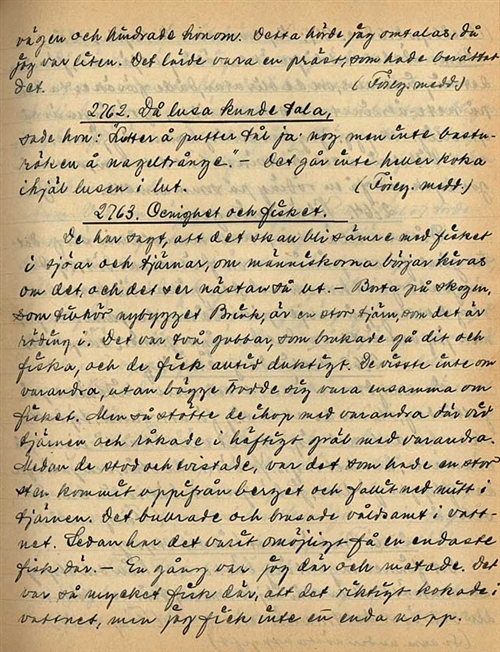 vägen och hindrade honom. Detta hörde jag omtalas, då
jag var liten. Det lärde vara en präst, som hade berättat
det. (Föreg. medd.)
2762. Då lusa kunde tala,
sade hon: å putter tål ja nog men inte bastu-
röken å nageltrånge." – Det går inte heller koka
ihjäl lusen i lut. (Föreg. medd.)
2763. Oenighet och fisket.
De har sagt, att det skall bli sämre med fisket
i sjöar och tjärnar, om människorna börjar kivas
om det, och det ser nästan så ut. – Borta på skogen,
som tillhör nybygget Brink, är en stor tjärn, som det är
röding i. Det var två gubbar, som brukade gå dit och
fiska, och de fick alltid duktigt. De visste inte om
varandra, utan bägge trodde sig vara ensamma om
fisket. Men så stötte de ihop med varandra där vid
tjärnen och råkade i häftigt gräl med varandra.
Medan de stod och tvistade, var det som hade en stor
sten kommit uppifrån berget och fallit ned mitt i
tjärnen. Det bullrade och brusade våldsamt i vatt-
net. Sedan har det varit omöjligt få en endaste
fisk där. – En gång var jag där och metade. Det
var så mycket fisk där, att det riktigt kokade i
vattnet, men jag fick inte en enda napp.